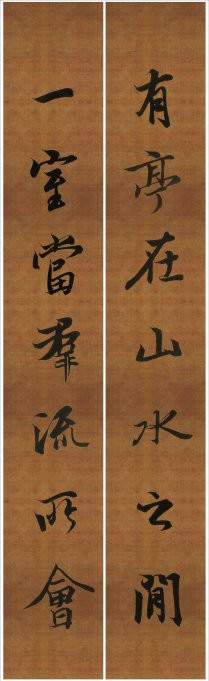 有亭在山水之間
一室當羣流所會